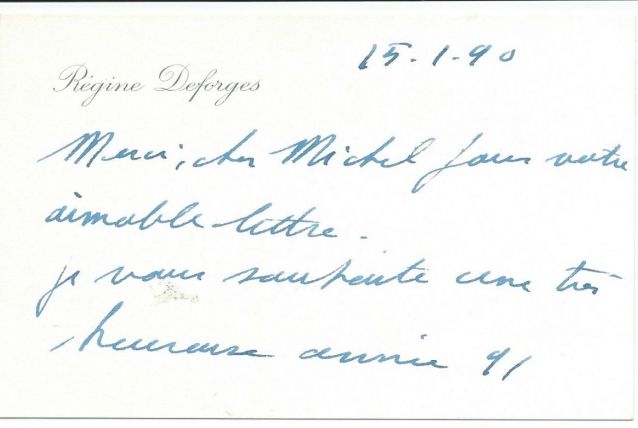 15.1.90
Régine Deforges
Merci, cher Michel pour votre
aimable lettre.
je vous souhaite une très
heureuse année 91